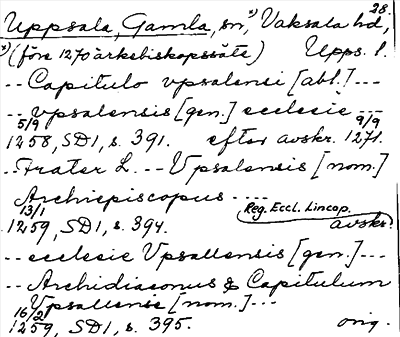 28.
Uppsala, Gamla, sn, x) Vaksala hd,
x) (före 1270 ärkebiskopssäte) Upps. l.
-- Capitulo vpsalensi [abl.] ---
-- vpsalensis [gen.] ecclesie ---
5/9 9/9
1258, SD1, s. 391. efter avskr. 1271.
-- Frater L. --- Vpsalensis [nom.]
Archiepiscopus ---
13/1 Reg. Eccl. Lincop.
1259, SD1, s. 394. avskr.
-- ecclesie Vpsallensis [gen.] ---
-- Archidiaconus & Capitulum
Vpsallense [nom.] ---
16/2
1259, SD1, s. 395. orig.